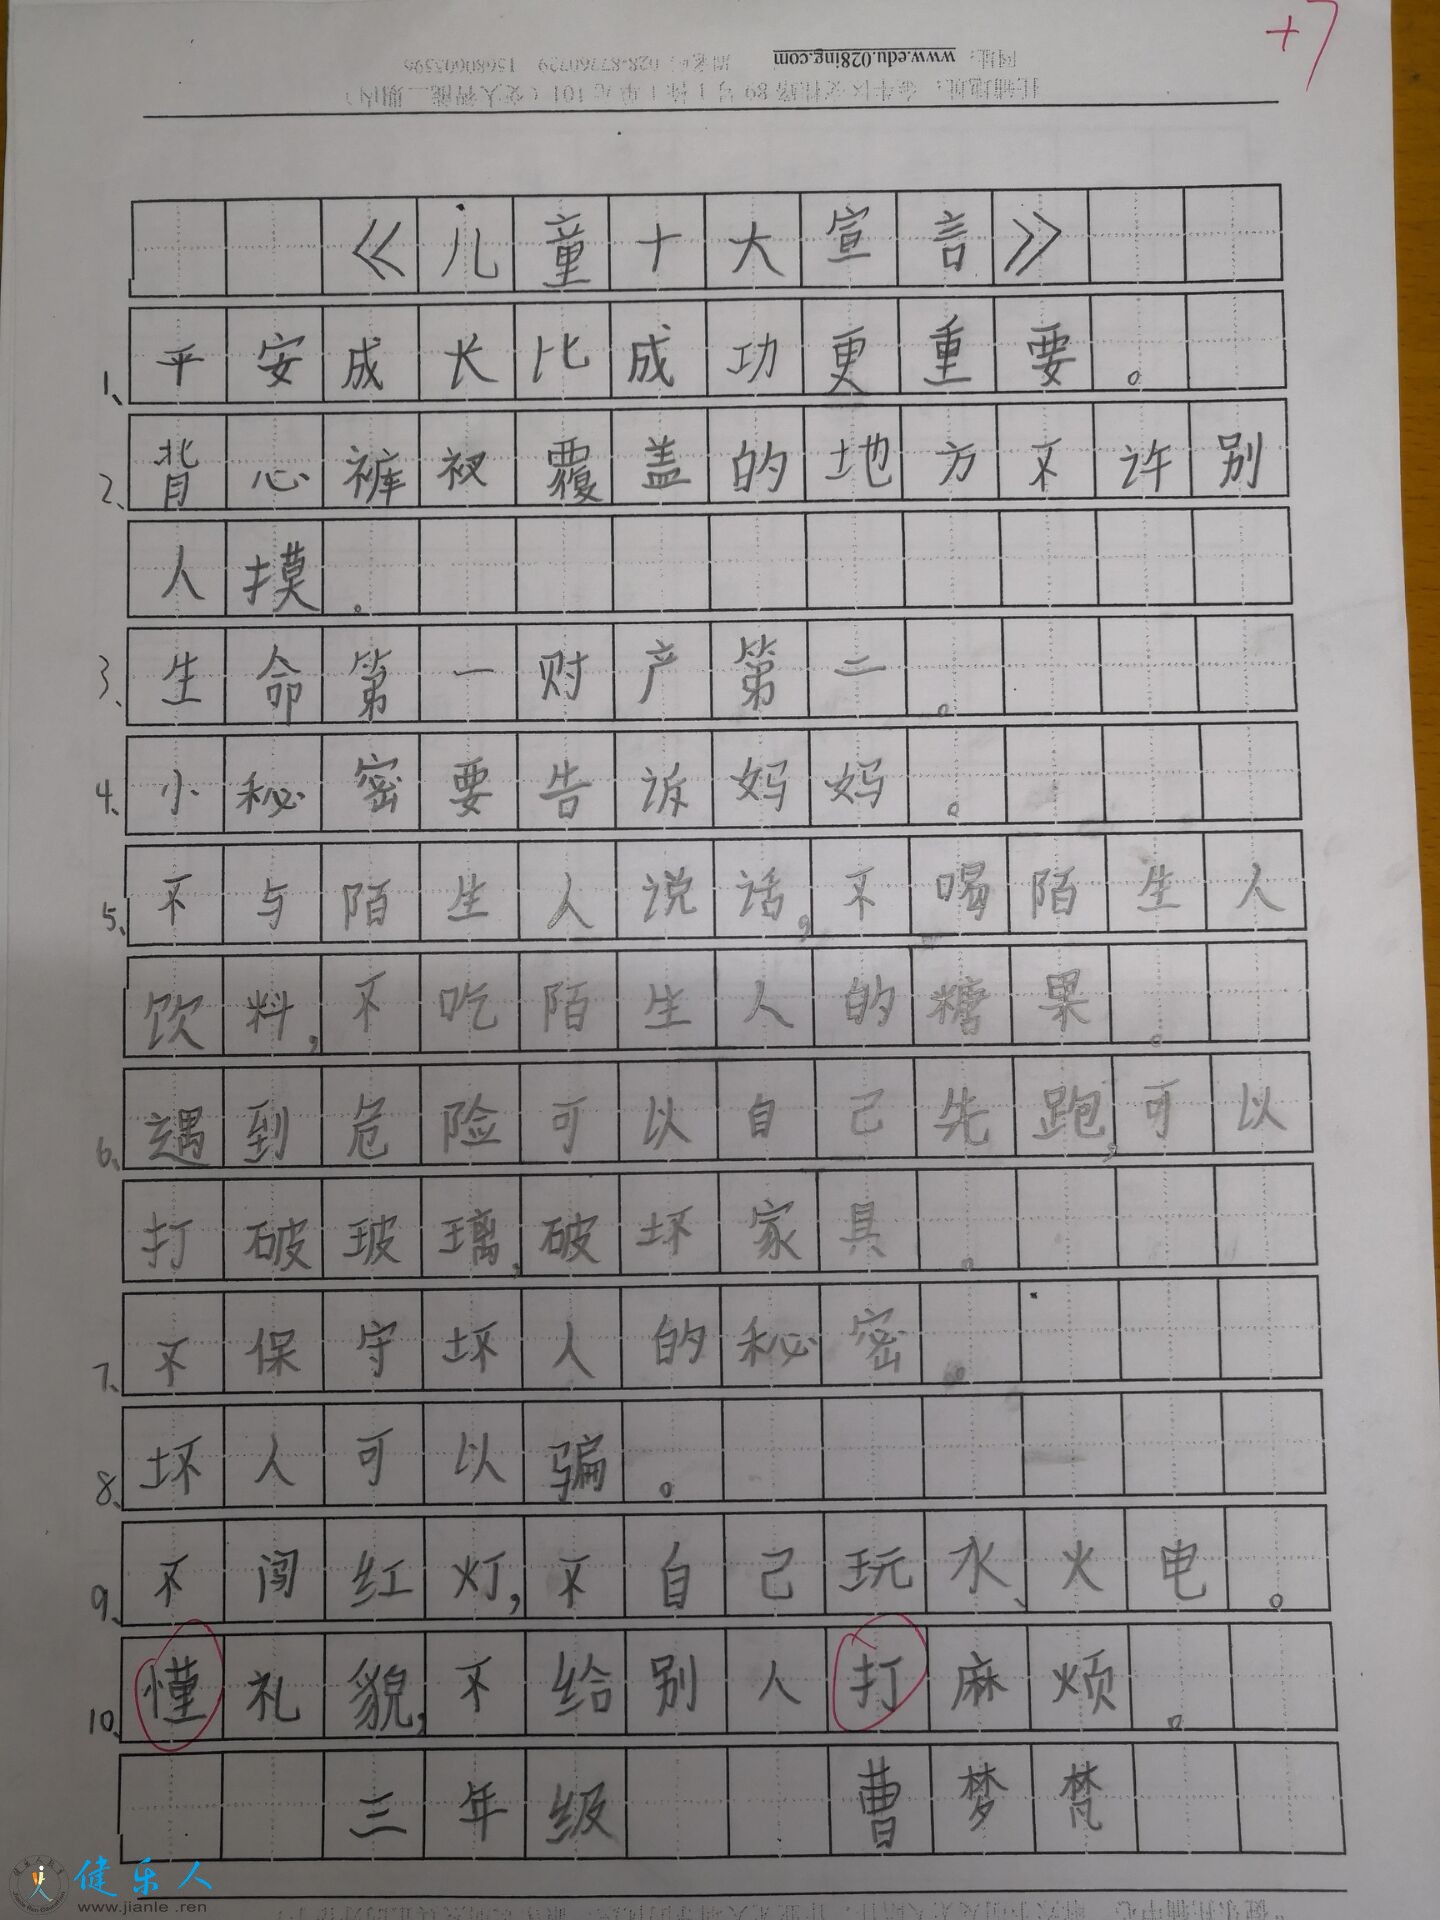 +7
www.edu.028ing.com
《儿童十大宣言》
1、平安成长比成功更重要。
2、背心裤衩覆盖的地方不许别
人摸。
3、生命第一财产第二。
4、小秘密要告诉妈妈。
5、不与陌生人说话,不喝陌生人
饮料,不吃陌生人的糖果。
6、遇到危险可以自己先跑,可以
打破玻璃,破坏家具。
7、不保守坏人的秘密。
8、坏人可以骗。
9、不闯红灯,不自己玩水、火电。
10、懂礼貌,不给别人打麻烦。
三年级 曹梦梵
健乐人
www.jianle.ren